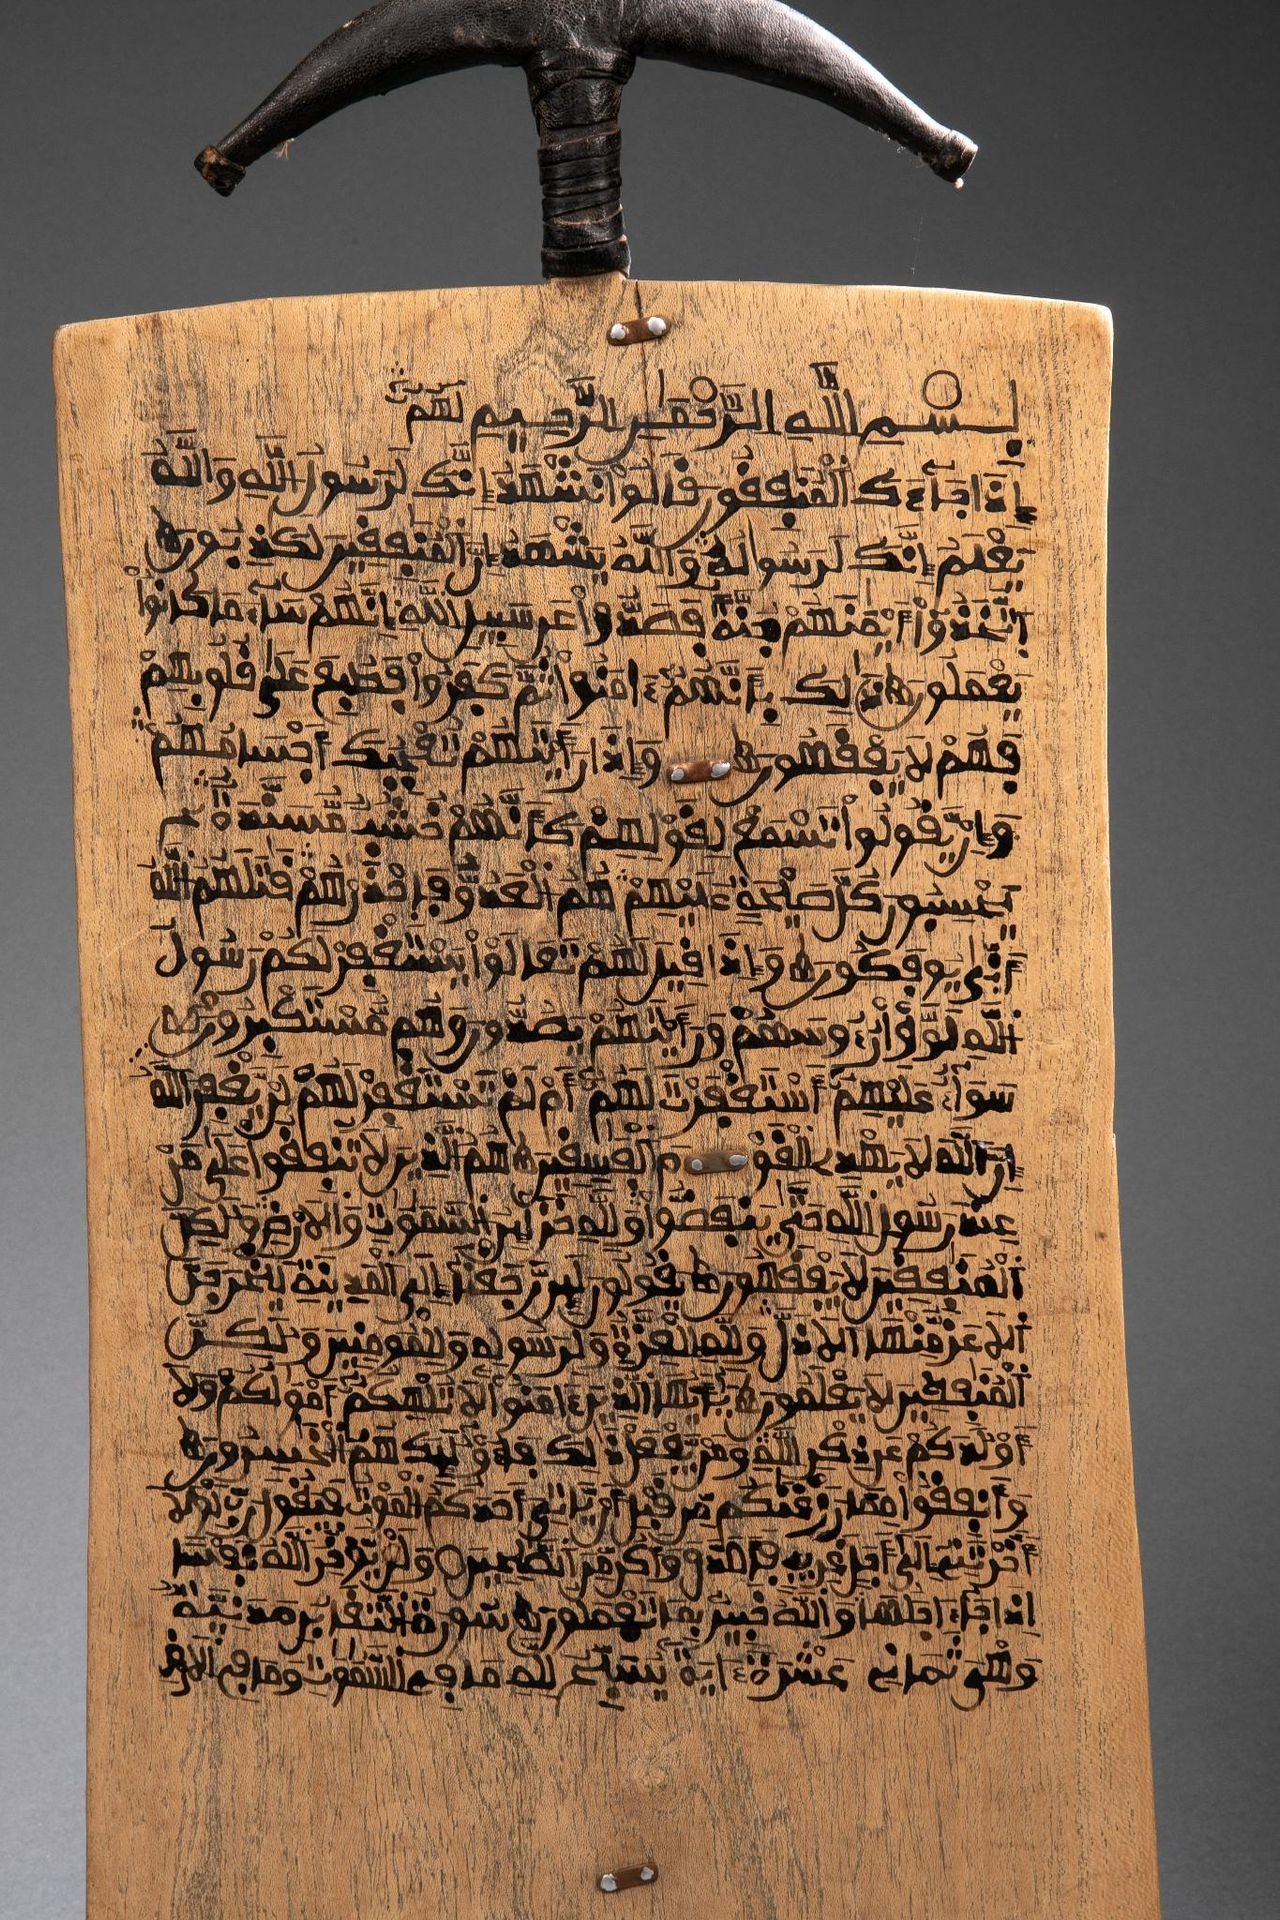 بسم الله الرحمن الرحيم
إذا جاءك المنفقون قالوا نشهد إنك لرسول الله والله
يعلم إنك لرسوله والله يشهد إن المنفقين لكذبون
اتخذوا أيمنهم جنة فصدوا عن سبيل الله إنهم ساء ما كانوا
يعملون ذلك بأنهم ءامنوا ثم كفروا فطبع على قلوبهم
فهم لا يفقهون وإذا رأيتهم تعجبك أجسامهم
وإن يقولوا تسمع لقولهم كأنهم خشب مسندة
يحسبون كل صيحة عليهم هم العدو فاحذرهم قتلهم الله
أنى يوفكون وإذا قيل لهم تعالوا يستغفر لكم رسول
الله لووا رءوسهم ورأيتهم يصدون وهم مستكبرون
سواء عليهم أستغفرت لهم أم لم تستغفر لهم لن يغفر الله
إن الله لا يهدي القوم الفسقين هم الذين لا تنفقوا على من
عند رسول الله حتى ينفضوا ولله خزاين السموت والارض ولكن
المنفقين لا يفقهون يقولون لين رجعنا إلى المدينة ليخرجن
الاعز منها الاذل ولله العزة ولرسوله وللمومنين ولكن
المنفقين لا يعلمون يأيها الذين ءامنوا لا تلهكم أمولكم ولا
أولدكم عن ذكر الله ومن يفعل ذلك فأوليك هم الخسرون
وأنفقوا مما رزقنكم من قبل أن ياتي أحدكم الموت فيقول رب لولا
أخرتني إلى أجل قريب فاصدق وأكن من الصلحين ولن يوخر الله نفسا
اذا جاء اجلها والله خبير بما تعملون سورة التغابن مدنية
وهي ثماني عشرة اية يسبح لله ما في السموت وما في الارض